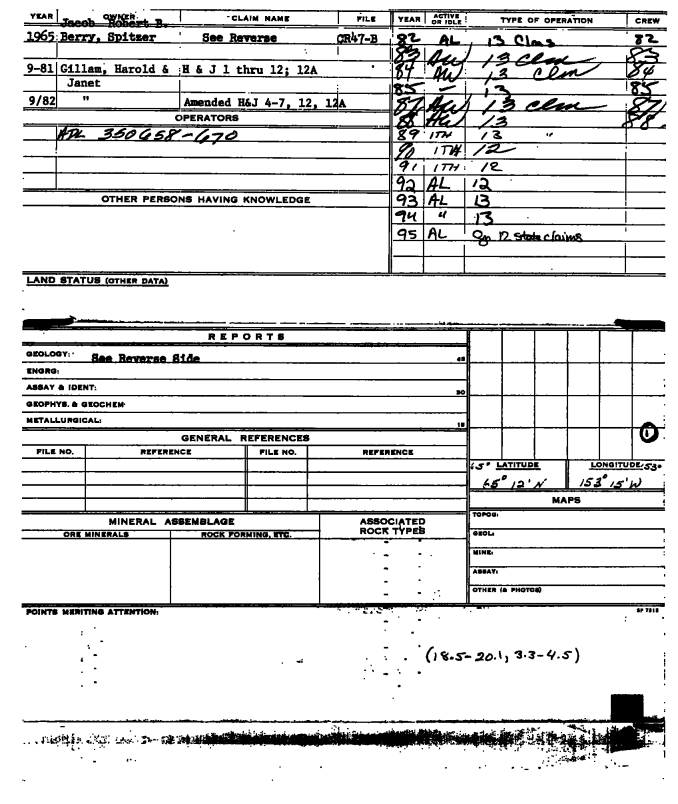 YEAR OWNER CLAIM NAME FILE YEAR ACTIVE OR IDLE TYPE OF OPERATION CREW
Jacob Robert B.
1965 Berry, Spitzer See Reverse CR47-B 82 AL 13 Clms 82
83 AW 13 Clm 83
9-81 Gillam, Harold & H & J 1 thru 12; 12A 84 AW 13 Clm 84
Janet 85 - 13 85
9/82 " Amended H&J 4-7, 12, 12A 87 AW 13 Clm 87
OPERATORS 88 AW 13 88
ADL 350658-670 89 ITH 13 "
90 ITH 12
91 ITH 12
92 AL 12
OTHER PERSONS HAVING KNOWLEDGE 93 AL 13
94 " 13
95 AL On 12 state claims
LAND STATUS (OTHER DATA)
REPORTS
GEOLOGY: See Reverse Side 45
ENGRG:
ASSAY & IDENT: 30
GEOPHYS. & GEOCHEM:
METALLURGICAL: 15
1
GENERAL REFERENCES
FILE NO. REFERENCE FILE NO. REFERENCE
65° LATITUDE LONGITUDE 153°
65° 12' N 153° 15' W
MAPS
MINERAL ASSEMBLAGE ASSOCIATED ROCK TYPES TOPOG:
ORE MINERALS ROCK FORMING, ETC. GEOL:
MINE:
ASSAY:
OTHER (& PHOTOS)
POINTS MERITING ATTENTION:
(18.5-20.1, 3.3-4.5)